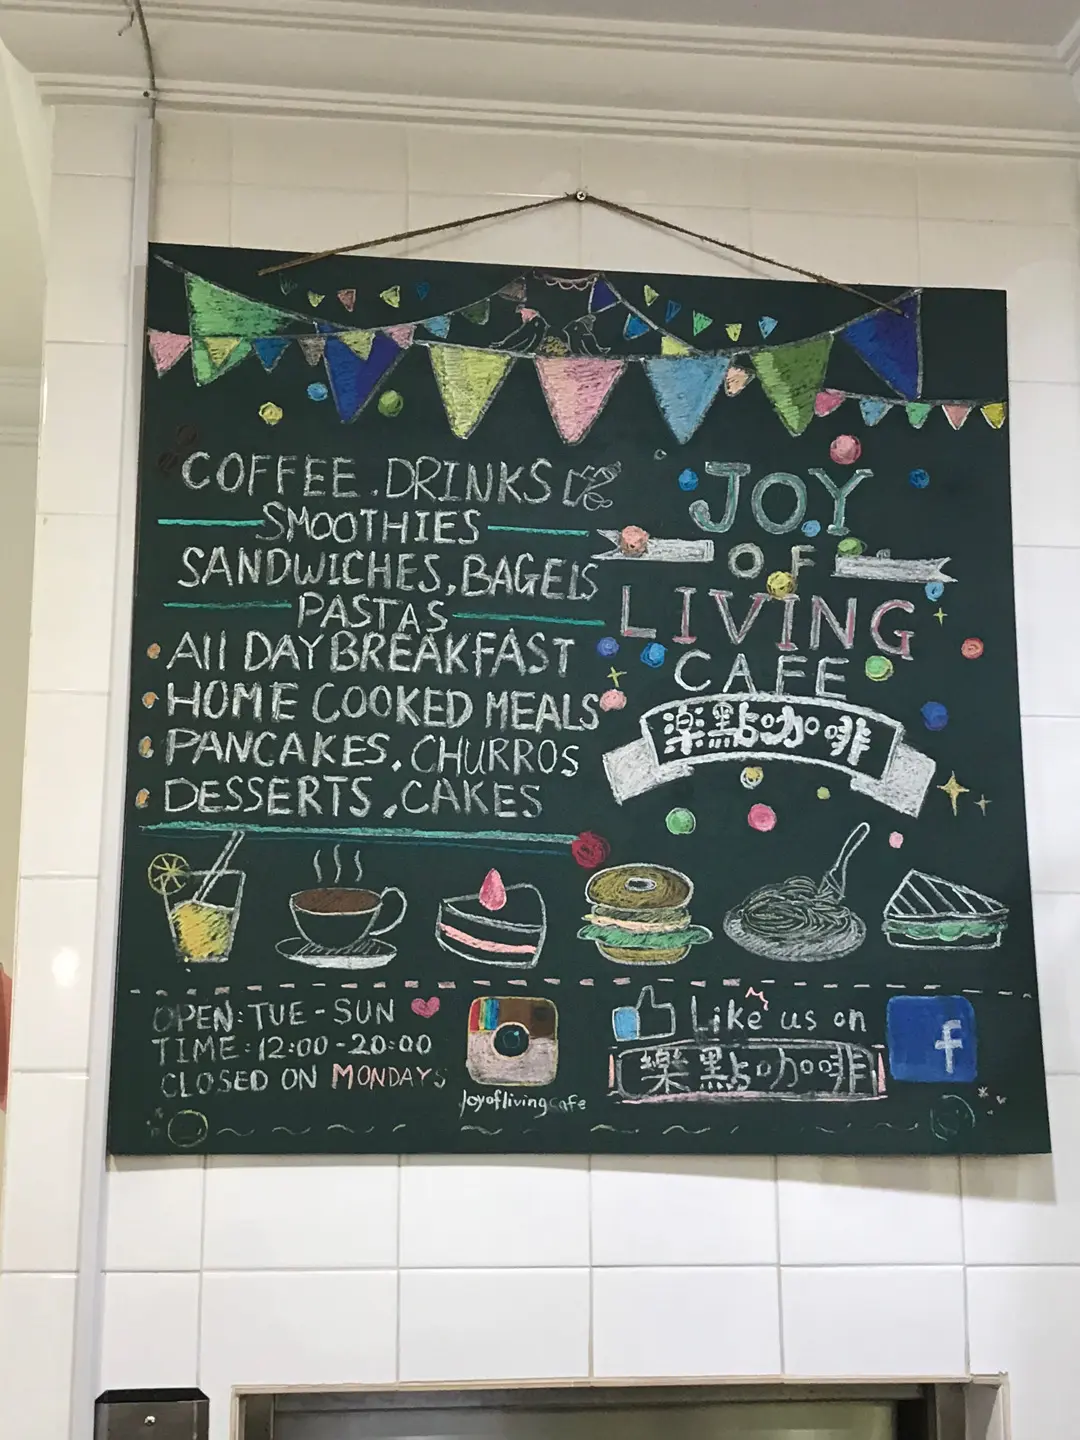 COFFEE.DRINKS
SMOOTHIES
SANDWICHES,BAGELS
PASTAS
All DAY BREAKFAST
HOME COOKED MEALS
PANCAKES,CHURROS
DESSERTS,CAKES
JOY
OF
LIVING
CAFE
楽點咖啡
OPEN:TUE-SUN
TIME:12:00-20:00
CLOSED ON MONDAYS
Joyoflivingcafe
Like us on
f
樂點咖啡